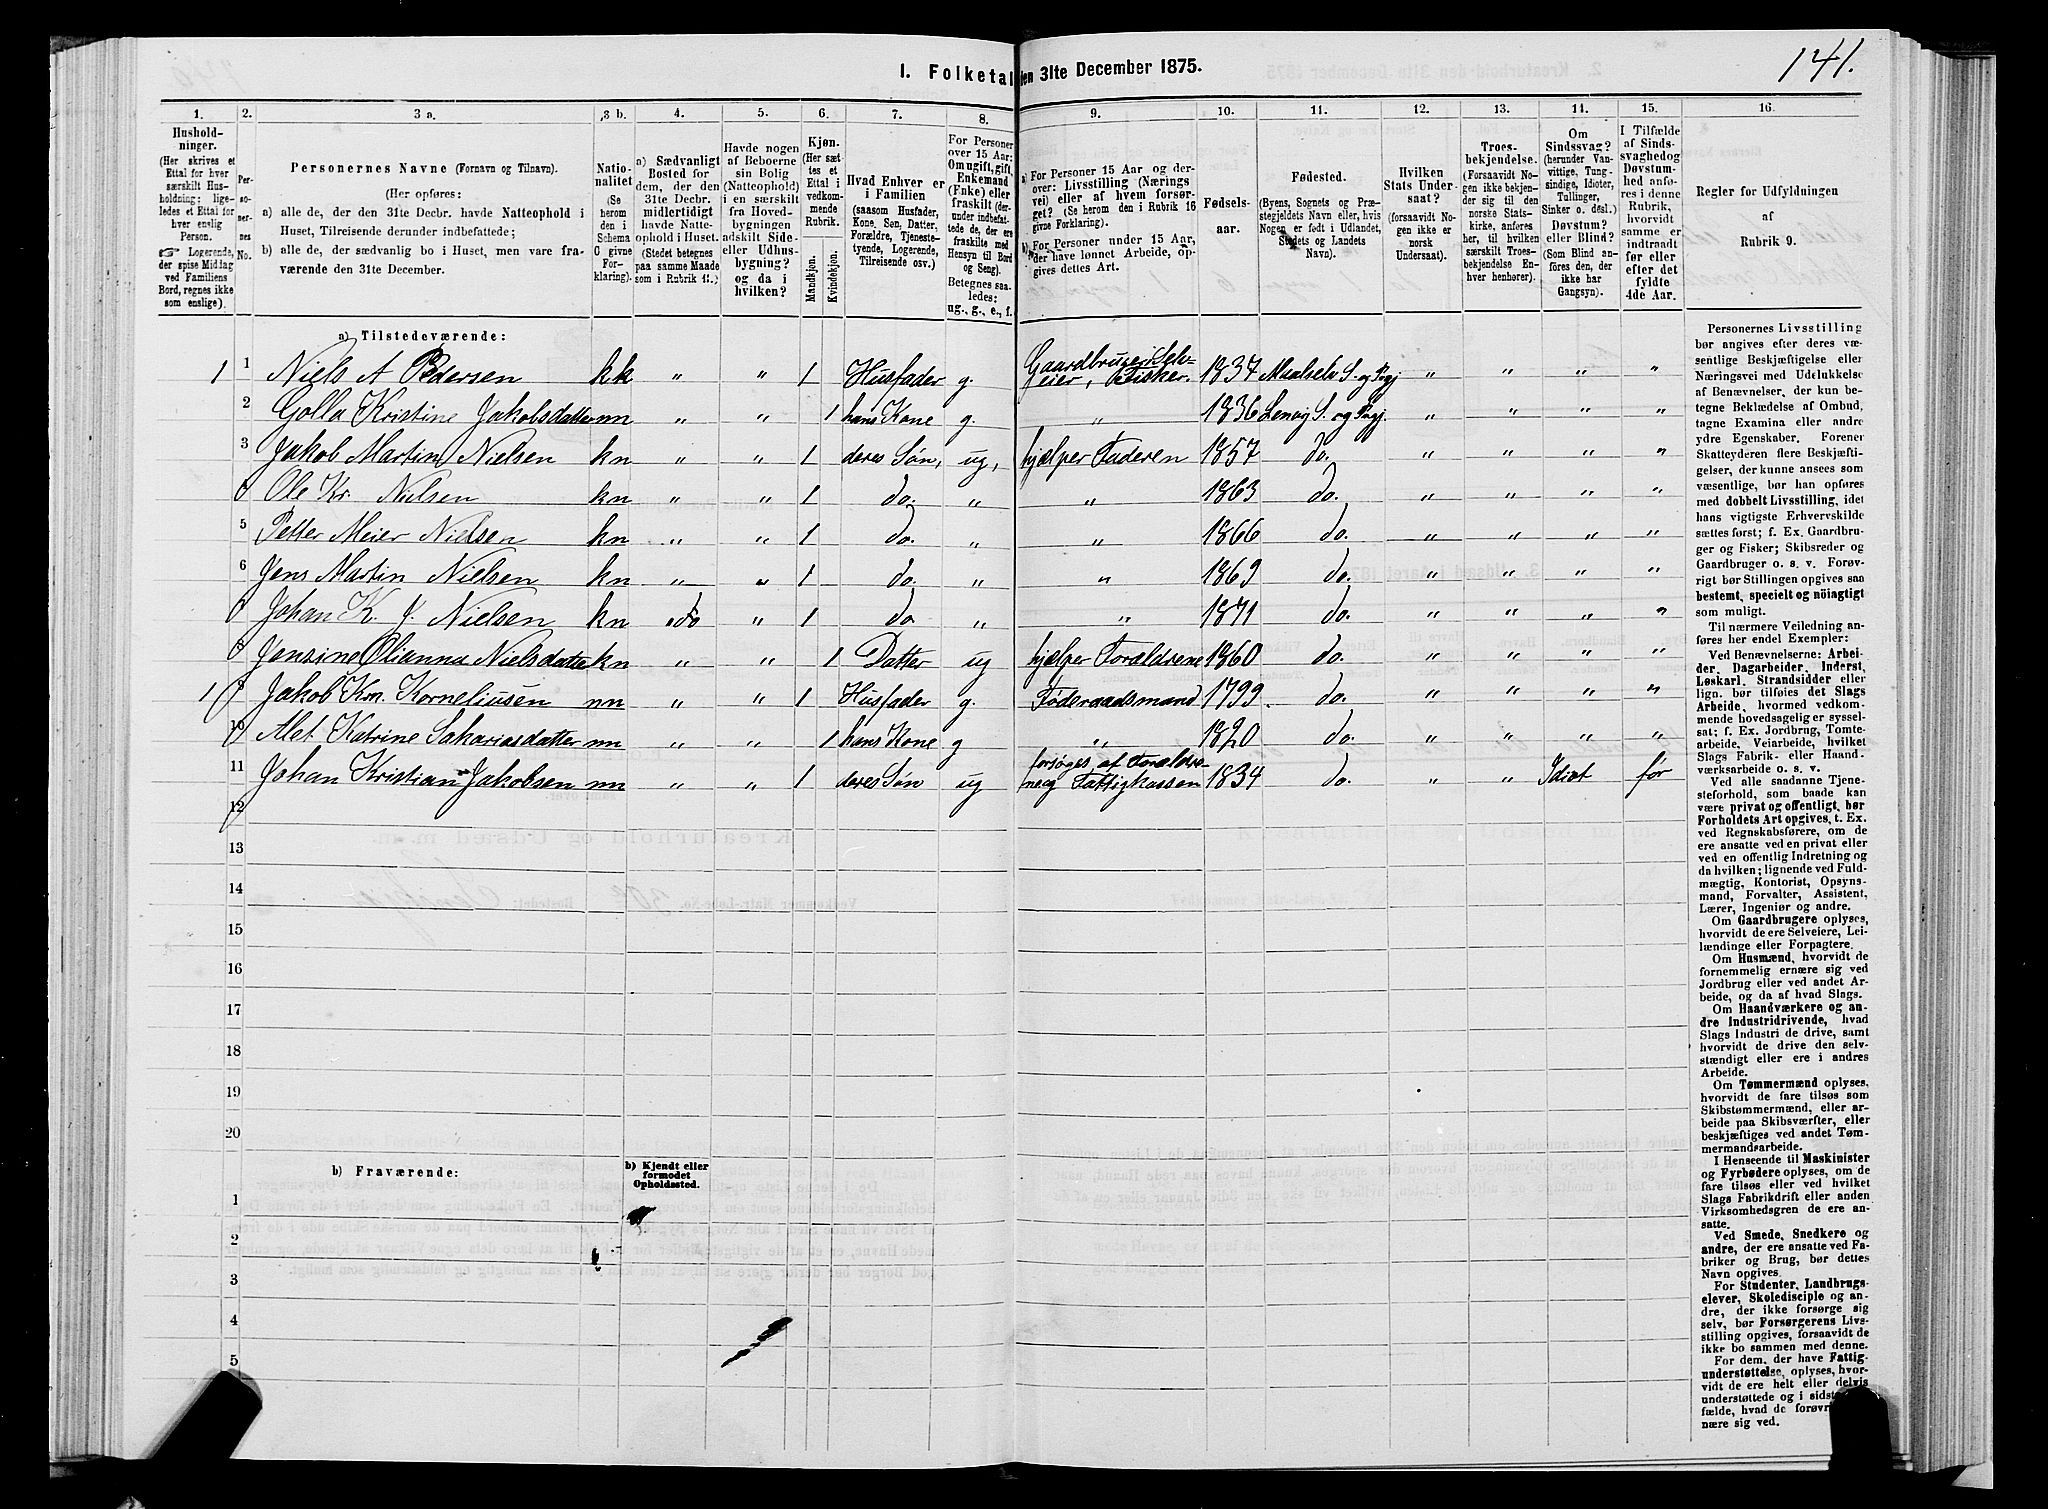 141.
I. Folketal den 31te December 1875.
1. 2. 3 a. 3 b. 4. 5. 6. 7. 8. 9. 10. 11. 12. 13. 14. 15. 16.
Hushold-
ninger.
(Her skrives et
Ettal for hver
særskilt Hus-
holdning; lige-
ledes et Ettal for
hver enslig
Person.
☞ Logerende,
der spise Middag
ved Familiens
Bord, regnes ikke
som enslige).
Per-
so-
ner-
nes
No.
Personernes Navne (Fornavn og Tilnavn).
(Her opføres:
a) alle de, der den 31te Decbr. havde Natteophold i
Huset, Tilreisende derunder indbefattede;
b) alle de, der sædvanlig bo i Huset, men vare fra-
værende den 31te December.)
Natio-
nalitet
(Se
herom
den i
Schema
G givne
For-
klaring).
a) Sædvanligt
Bosted for
dem, der den
31te Decbr.
midlertidigt
havde Natte-
ophold i Huset.
(Stedet betegnes
paa samme Maade
som i Rubrik 11.)
Havde nogen
af Beboerne
sin Bolig
(Natteophold)
i en særskilt
fra Hoved-
bygningen
adskilt Side-
eller Udhus-
bygning?
og da i
hvilken?
Kjøn.
(Her sæt-
tes et
Ettal i
vedkom-
mende
Rubrik.
Mandkjøn.
Kvindekjøn.
Hvad Enhver er
i Familien
(saasom Husfader,
Kone, Søn, Datter,
Forældre, Tjeneste-
tyende, Logerende,
Tilreisende osv.)
For Personer
over 15 Aar:
Om ugift, gift,
Enkemand
(Enke) eller
fraskilt (der-
under indbefat-
tede de, der ere
fraskilte med
Hensyn til Bord
og Seng).
Betegnes saa-
ledes:
ug., g., e., f.
a) For Personer 15 Aar og der-
over: Livsstilling (Nærings
vei) eller af hvem forsør-
get? (Se herom den i Rubrik 16
givne Forklaring).
b) For Personer under 15 Aar,
der have lønnet Arbeide, op-
gives dettes Art.
Fødsels-
aar.
Fødested.
(Byens, Sognets og Præ-
stegjeldets Navn eller, hvis
Nogen er født i Udlandet,
Stedets og Landets
Navn).
Hvilken
Stats Under-
saat?
(forsaavidt No-
gen ikke er
norsk
Undersaat).
Troes-
bekjendelse.
(Forsaavidt No-
gen ikke bekjen-
der sig til den
norske Stats-
kirke, anføres
her, til hvilken
særskilt Troes-
bekjendelse En-
hver henhører).
Om
Sindssvag?
(herunder Van-
vittige, Tung-
sindige, Idioter,
Tullinger,
Sinker o. desl.)
Døvstum?
eller Blind?
(Som Blind an-
føres den, der
ikke har
Gangsyn).
I Tilfælde
af Sinds-
svaghed og
Døvstum-
hed anfø-
res i denne
Rubrik,
hvorvidt
samme er
indtraadt
før eller
efter det
fyldte
4de Aar.
Regler for Udfyldningen
af
Rubrik 9.
a) Tilstedeværende:
1 1 Niels A Pedersen kk „ „ 1 Husfader g. Gaardbruger Selv-
eier, Fisker. 1834 Maalselv S. og Pgj „ „ „ „
2 Golla Kristine Jakobsdatter nn „ „ 1 hans Kone g. „ 1836 Lenvig S. og Pgj. „ „ „ „
3 Jakob Martin Nielsen kn „ „ 1 deres Søn, ug, hjælper Faderen 1857 do. „ „ „ „
Ole Kr. Nielsen kn „ „ 1 do. „ „ 1863 do. „ „ „ „
5 Petter Meier Nielsen kn „ „ 1 do. „ „ 1866 do. „ „ „ „
6 Jens Martin Nielsen kn „ „ 1 do. „ „ 1869 do. „ „ „ „
Johan K. J. Nielsen kn „ 1 do „ „ 1871 do. „ „ „ „
8 Jensine Olianna Nielsdatter kn „ „ 1 Datter ug hjælper Forældrene 1860 do. „ „ „ „
1 9 Jakob Krn. Korneliusen nn „ „ 1 Husfader g. Føderaadsmand 1799. do. „ „ „ „
10 Alet Katrine Sakariasdatter nn „ „ 1 hans Kone g „ 1820 do. „ „ „ „
11 Johan Kristian Jakobsen nn „ „ 1 deres Søn ug forsørges af Forældre-
ne og Fattigkassen 1834 do. „ „ Idiot før
12
13
14
15
16
17
18
19
20
b) Fraværende:
b) Kjendt eller
formodet
Opholdssted.
1
2
3
4
5
Personernes Livsstilling
bør angives efter deres væ-
sentlige Beskjæftigelse eller
Næringsvei med Udelukkelse
af Benævnelser, der kun be-
tegne Beklædelse af Ombud,
tagne Examina eller andre
ydre Egenskaber. Forener
Skatteyderen flere Beskjæfti-
gelser, der kunne ansees som
væsentlige, bør han opføres
med dobbelt Livsstilling, idet
hans vigtigste Erhvervskilde
sættes først; f. Ex. Gaardbru-
ger og Fisker; Skibsreder og
Gaardbruger o. s. v. Forøv-
rigt bør Stillingen opgives saa
bestemt, specielt og nöiagtigt
som muligt.
Til nærmere Veiledning an-
føres her endel Exempler:
Ved Benævnelserne: Arbei-
der, Dagarbeider, Inderst,
Løskarl, Strandsidder eller
lign. bør tilføies det Slags
Arbeide, hvormed vedkom-
mende hovedsagelig er syssel-
sat; f. Ex. Jordbrug, Tomte-
arbeide, Veiarbeide, hvilket
Slags Fabrik- eller Haand-
værksarbeide o. s. v.
Ved alle saadanne Tjene-
steforhold, som baade kan
være privat og offentligt, bør
Forholdets Art opgives, t. Ex.
ved Regnskabsførere, om de
ere ansatte ved en privat eller
ved en offentlig Indretning og
da hvilken; lignende ved Fuld-
mægtig, Kontorist, Opsyns-
mand, Forvalter, Assistent,
Lærer, Ingeniør og andre.
Om Gaardbrugere oplyses,
hvorvidt de ere Selveiere, Lei-
lændinge eller Forpagtere.
Om Husmænd, hvorvidt de
fornemmelig ernære sig ved
Jordbrug eller ved andet Ar-
beide, og da af hvad Slags.
Om Haandværkere og an-
dre Industridrivende, hvad
Slags Industri de drive, samt
hvorvidt de drive den selv-
stændigt eller ere i andres
Arbeide.
Om Tømmermænd oplyses,
hvorvidt de fare tilsøs som
Skibstømmermænd, eller ar-
beide paa Skibsværfter, eller
beskjæftiges ved andet Tøm-
mermandsarbeide.
I Henseende til Maskinister
og Fyrbødere oplyses, om de
fare tilsøs eller ved hvilket
Slags Fabrikdrift eller anden
Virksomhedsgren de ere an-
satte.
Ved Smede, Snedkere og
andre, der ere ansatte ved Fa-
briker og Brug, bør dettes
Navn opgives.
For Studenter, Landbrugs-
elever, Skoledisciple og an-
dre, der ikke forsørge sig
selv, bør Forsørgerens Livs-
stilling opgives, forsaavidt de
ikke bo sammen med denne.
For dem, der have Fattig-
understøttelse, oplyses, hvor-
vidt de ere helt eller delvis
understøttede og i sidste
fælde, hvad de forøvr
nære sig ved.